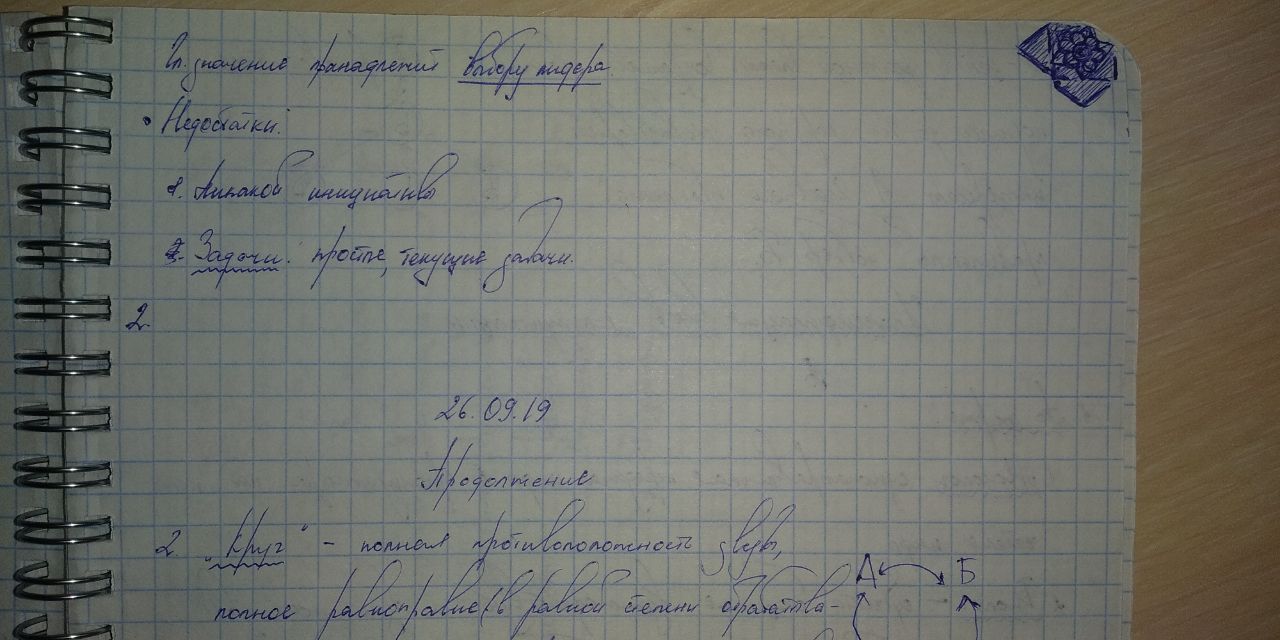 Гл. значение принадлежит выбору лидера
• Недостатки:
1. Никакой инициативы
2. Задачи: простые, текущие задачи.
2.
26.09.19
Продолжение
2 "Круг" - полная противоположность
А Б
полное равноправие (в равной степени обрабатыва-